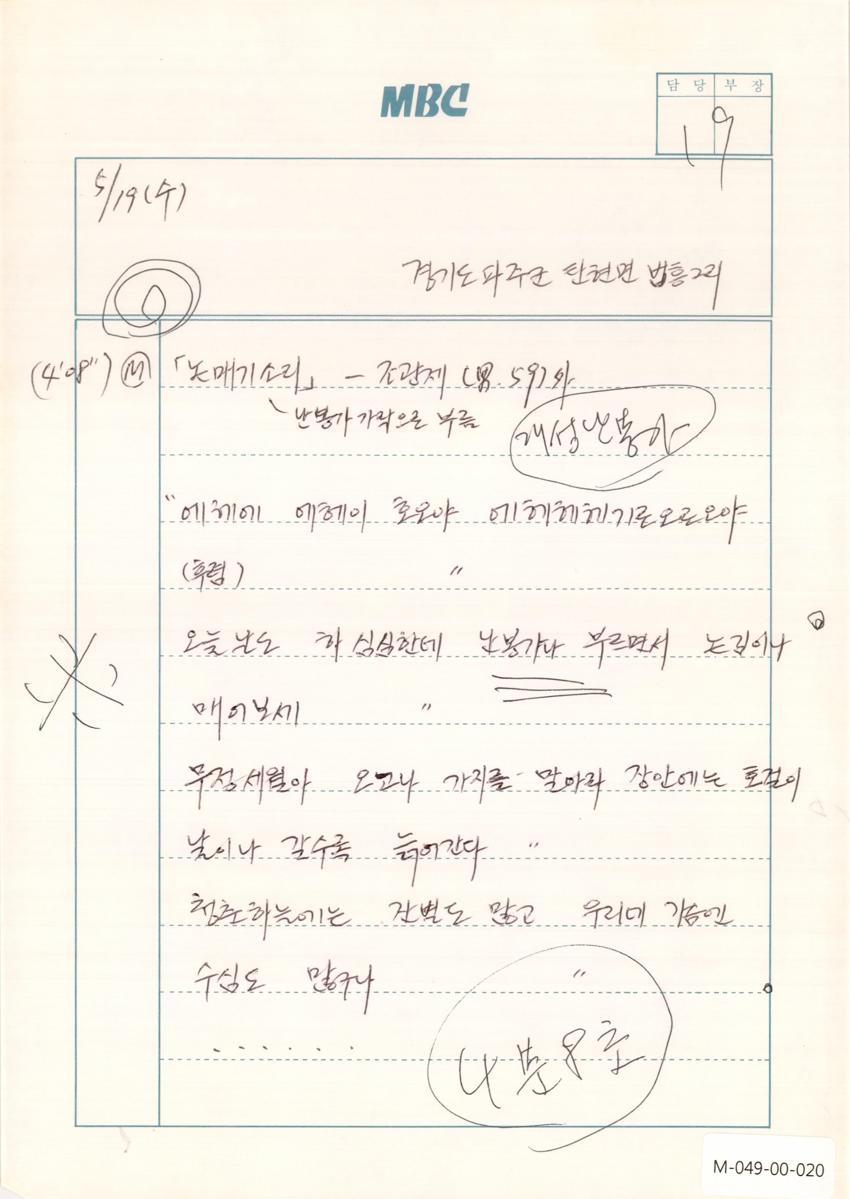 MBC
담당부장
19
5/19(수)
경기도 파주군 탄현면 법흥2리
(4'08") Ⓜ 「논매기소리」 - 조관제 (男. 59) 外
난봉가 가락으로 부름
개성난봉가
"에헤에 에헤이 호오야 에헤헤헤기로오르오야
(후렴) "
오늘날도 하 심심한데 난봉가나 부르면서 논김이나
매어보세 "
무정세월아 오고나 가지를 말아라 장안에는 호걸이
날이나 갈수록 늙어간다 "
청춘하늘에는 잔별도 많고 우리네 가슴엔
수심도 많구나 "
. . . . . .
4분8초
M-049-00-020